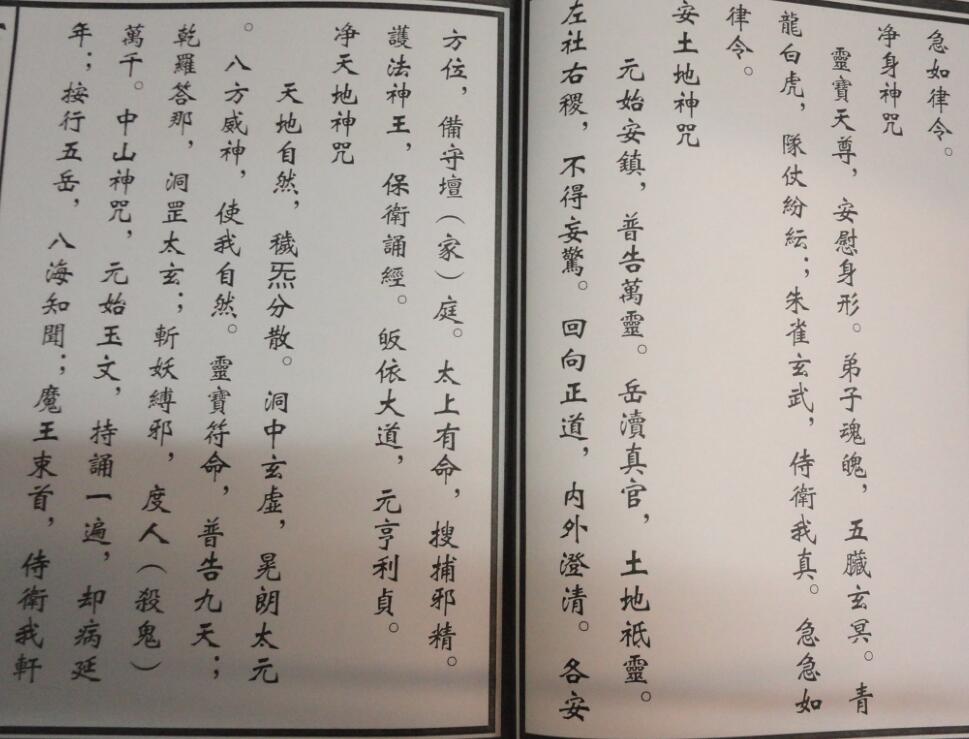 急如律令。
净身神咒
靈寶天尊，安慰身形。弟子魂魄，五臟玄冥。青
龍白虎，隊仗紛紜；朱雀玄武，侍衛我真。急急如
律令。
安土地神咒
元始安鎮，普告萬靈。岳瀆真官，土地祇靈。
左社右稷，不得妄驚。回向正道，內外澄清。各安
方位，備守壇（家）庭。太上有命，搜捕邪精。
護法神王，保衛誦經。皈依大道，元亨利貞。
净天地神咒
天地自然，穢炁分散。洞中玄虛，晃朗太元
。八方威神，使我自然。靈寶符命，普告九天；
乾羅答那，洞罡太玄；斬妖縛邪，度人（殺鬼）
萬千。中山神咒，元始玉文，持誦一遍，却病延
年；按行五岳，八海知聞；魔王束首，侍衛我軒